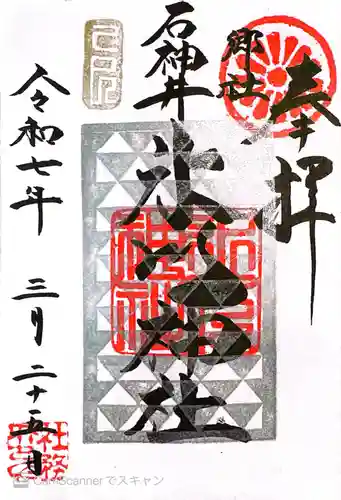 奉拝
郷社
石神井
氷川神社
令和七年 三月 二十五日
社務
CamScanner でスキャン